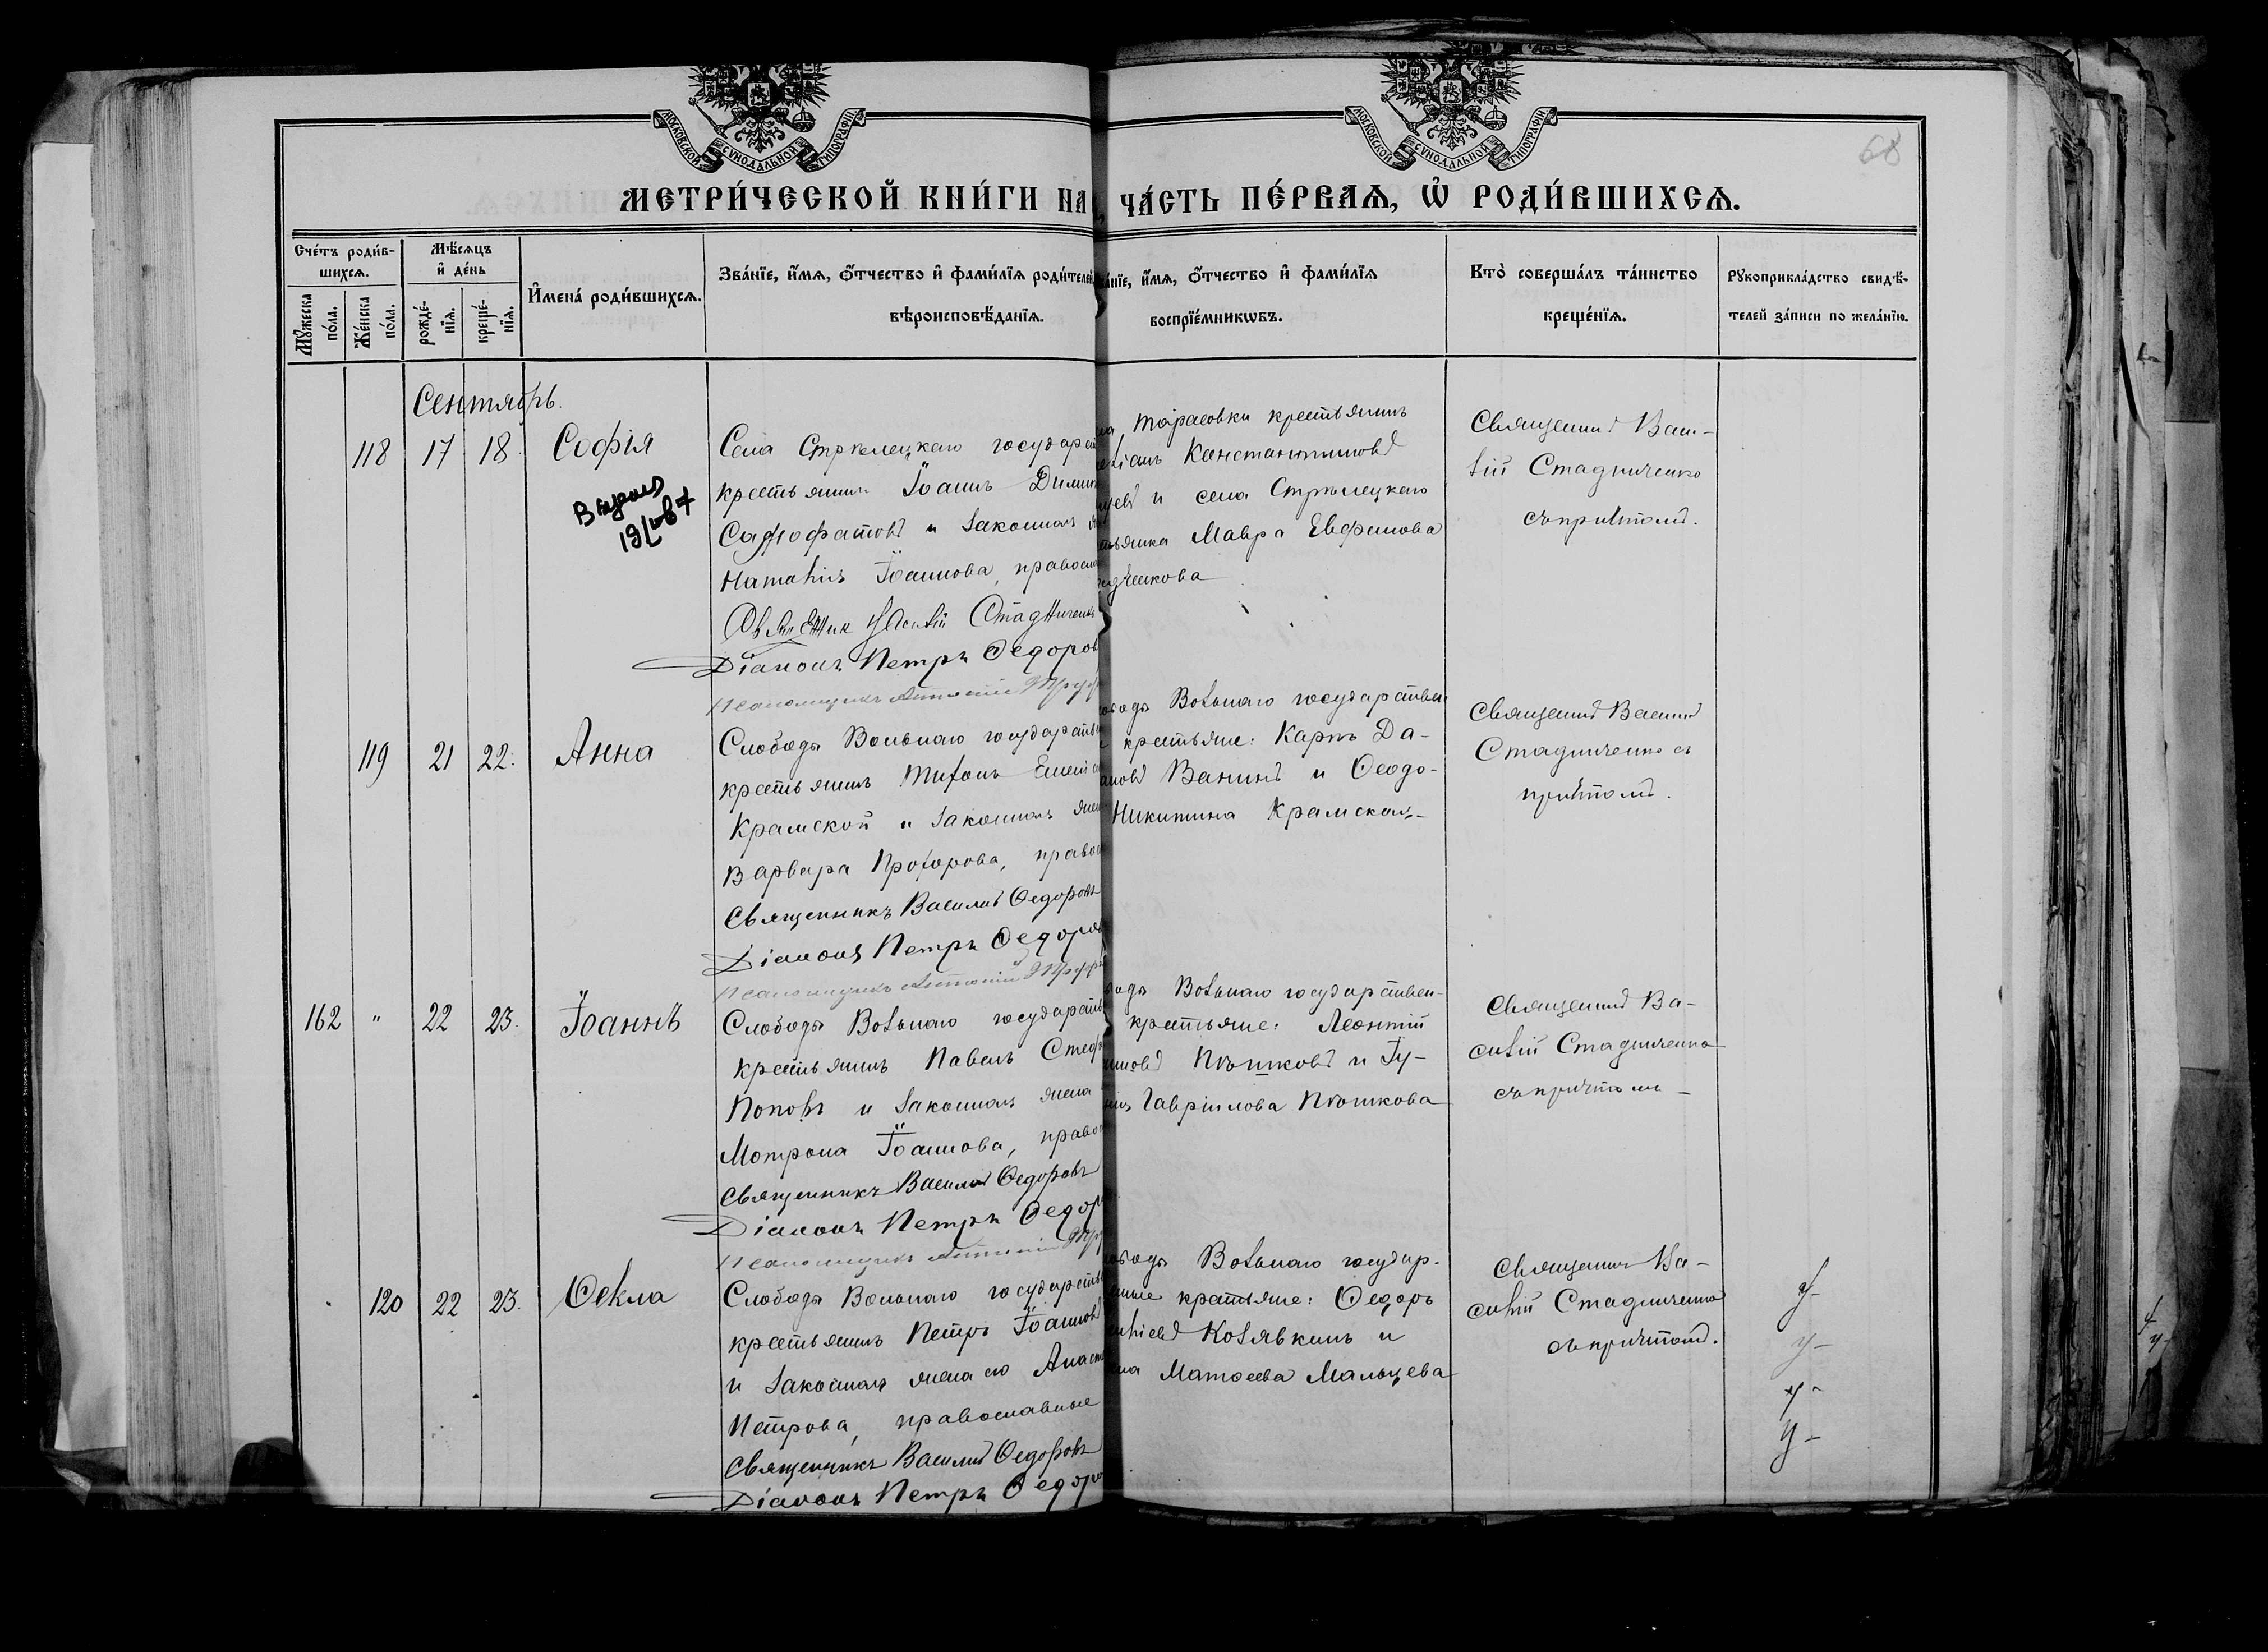 МОСКОВСКОЙ СѴНОДАЛЬНОЙ ТИПОГРАФІИ
МОСКОВСКОЙ СѴНОДАЛЬНОЙ ТИПОГРАФІИ
68
МЕТРИ́ЧЕСКОЙ КНИ́ГИ НА
ЧА́СТЬ ПЕ́РВАѦ, Ѡ҆ РОДИ́ВШИХСѦ.
Сче́тъ роди́в-
шихсѧ.
Мꙋ́жеска
по́ла.
Же́нска
по́ла.
Мѣ́сѧцъ
и҆ де́нь
рожде́-
нїѧ.
креще́-
нїѧ.
И҆мена́ роди́вшихсѧ.
Зва́нїе, и҆́мѧ, ѻ҆́тчество и҆ фами́лїѧ роди́телей
вѣроисповѣ́данїѧ.
и҆́мѧ, ѻ҆́тчество и҆ фами́лїѧ
воспрїе́мникѡвъ.
Кто̀ соверша́лъ та́инство
креще́нїѧ.
Рꙋкоприкла́дство свидѣ́-
телей за́писи по жела́нїю.
Сентябрь.
118 17 18. Софія
Села Стрѣлецкаго государст
крестьянинъ Іоаннъ Дими
и законная
Наталія Іоаннова, правосла
Священник Василій Стадниченк
Діаконъ Петръ Ѳедоров
Псаломщикъ Антоній
Тарасовки крестьянинъ
Константиновъ
и села Стрѣлецкаго
Мавра Евфимова
Священникъ Васи-
лій Стадниченко
съ причтомъ.
119 21 22. Анна
Слободы Вольнаго государстве
крестьянинъ Тихонъ
Крамской и законная жен
Варвара Прохорова, право
Священникъ Василій Ѳедоровъ
Діаконъ Петръ Ѳедоров
Псаломщикъ Антоній
Вольнаго государствен
крестьяне: Карпъ Да-
Ванинъ и Ѳеодо-
Никитина Крамская
Священникъ Василій
Стадниченко съ
причтомъ.
162 " 22 23. Іоаннъ
Слободы Вольнаго государств
крестьянинъ Павелъ Стеф
Поповъ и законная жена
Мотрона Іоаннова, право
Священникъ Василій Ѳедоровъ
Діаконъ Петръ Ѳедор
Псаломщикъ Антоній
Вольнаго государствен-
крестьяне: Леонтій
Пѣшковъ и Гу-
Гавріилова Пѣшкова
Священникъ Ва-
силій Стадниченко
съ причтомъ
120 22 23. Ѳекла
Слободы Вольнаго государстве
крестьянинъ Петръ Іоанновъ
и законная жена его Анаст
Петрова, православные
Священникъ Василій Ѳедоровъ
Діаконъ Петръ Ѳедоро
Вольнаго государ.
крестьяне: Ѳедоръ
Козявкинъ и
Матѳеева Мальцева
Священникъ Ва-
силій Стадниченко
съ причтомъ.